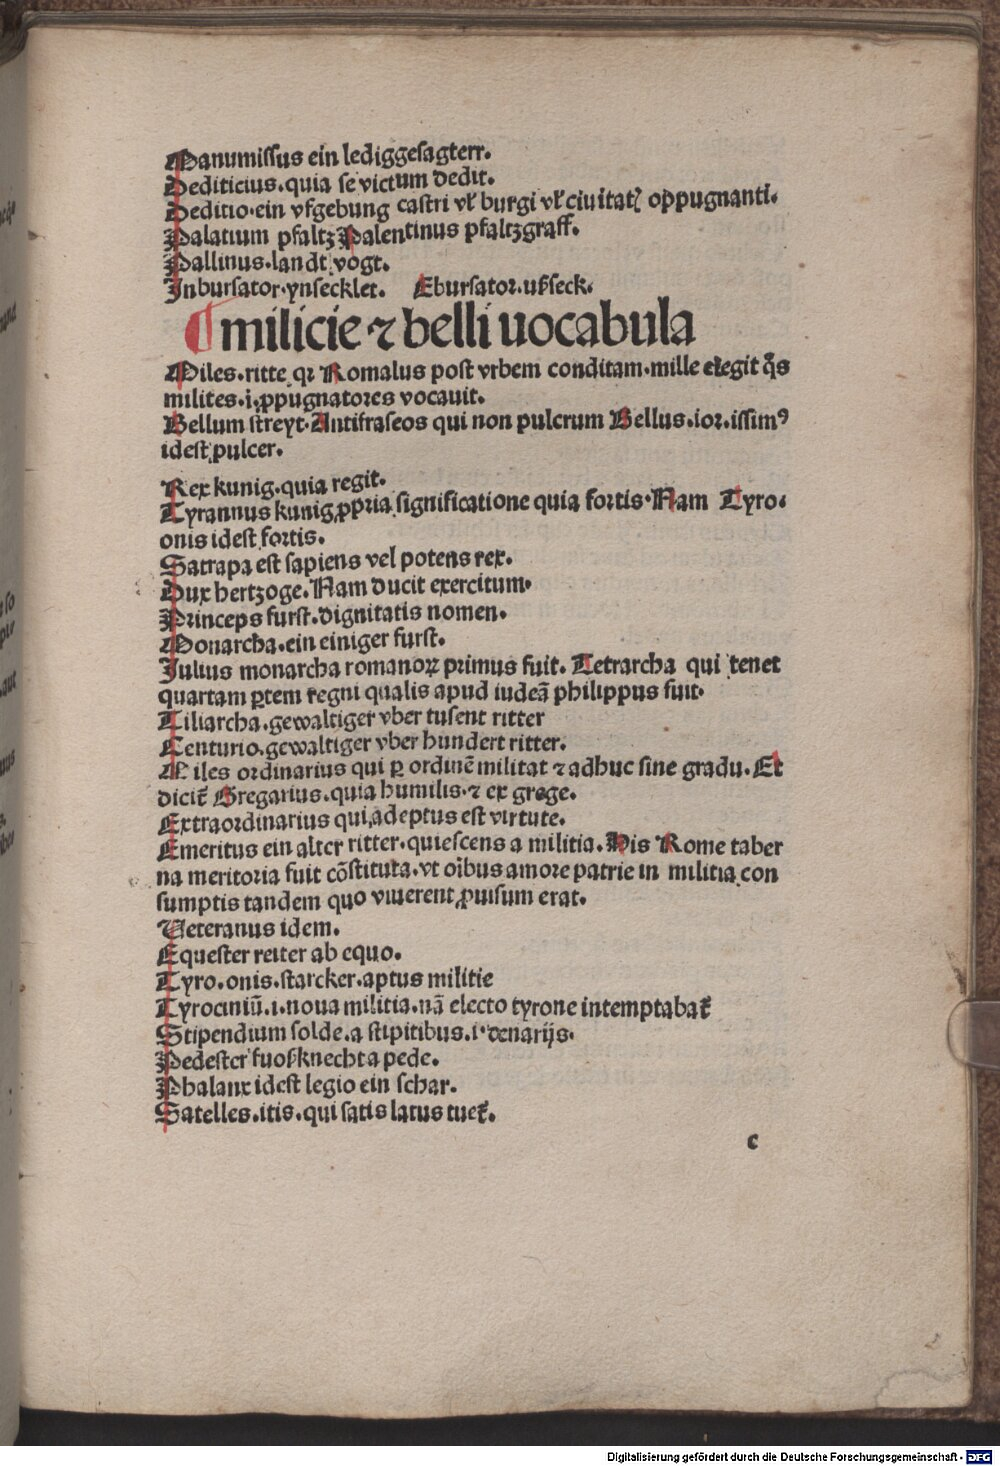 Manumissus ein lediggesagterr.
Dediticius.quia se victum dedit.
Deditio.ein vfgebung castri vl' burgi vl' ciuitatꝭ oppugnanti.
Palatium pfaltz Palentinus pfaltzgraff.
Pallinus.landt vogt.
Inbursator.ynsecklet. Ebursator.uſzseck.
¶ milicie ⁊ belli uocabula
Miles.ritte qꝛ Romalus post vrbem conditam.mille elegit q̃s
milites.i.ꝓpugnatores vocauit.
Bellum streyt.Antifraseos qui non pulcrum Bellus.ior.issimꝰ
idest pulcer.
Rex kunig.quia regit.
Tyrannus kunig ꝓpria significatione quia fortis.Nam Tyro.
onis idest fortis.
Satrapa est sapiens vel potens rex.
Dux hertzoge.Nam ducit exercitum.
Princeps furst.dignitatis nomen.
Monarcha.ein einiger furst.
Iulius monarcha romanoꝝ primus fuit. Tetrarcha qui tenet
quartam ꝑtem regni qualis apud iudeā philippus fuit.
Tiliarcha.gewaltiger vber tusent ritter
Centurio.gewaltiger vber hundert ritter.
Miles ordinarius qui ꝑ ordinē militat ⁊ adhuc sine gradu. Et
dicit̄ Gregarius.quia humilis.⁊ ex grege.
Extraordinarius qui adeptus est virtute.
Emeritus ein alter ritter.quiescens a militia. His Rome taber
na meritoria fuit cōstituta.vt oībus amore patrie in militia con
sumptis tandem quo viuerent ꝓuisum erat.
Veteranus idem.
Equester reiter ab equo.
Tyro.onis.starcker.aptus militie
Tyrociniū.i.noua militia.nā electo tyrone intemptabat̄
Stipendium solde.a stipitibus.i.denarijs.
Pedester fuoſzknecht a pede.
Phalanx idest legio ein schar.
Satelles.itis.qui satis latus tuet̄.
c
Digitalisierung gefördert durch die Deutsche Forschungsgemeinschaft - DFG